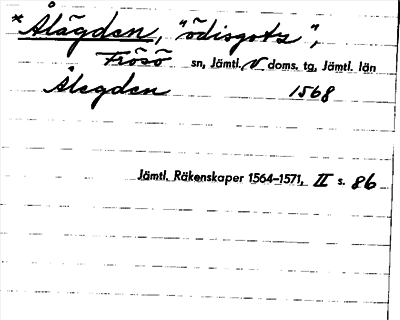 *Ålägden, "ödisgots",
Frösö sn, Jämtl. V doms. tg, Jämtl. län
Ålegden 1568
Jämtl. Räkenskaper 1564–1571, II s. 86